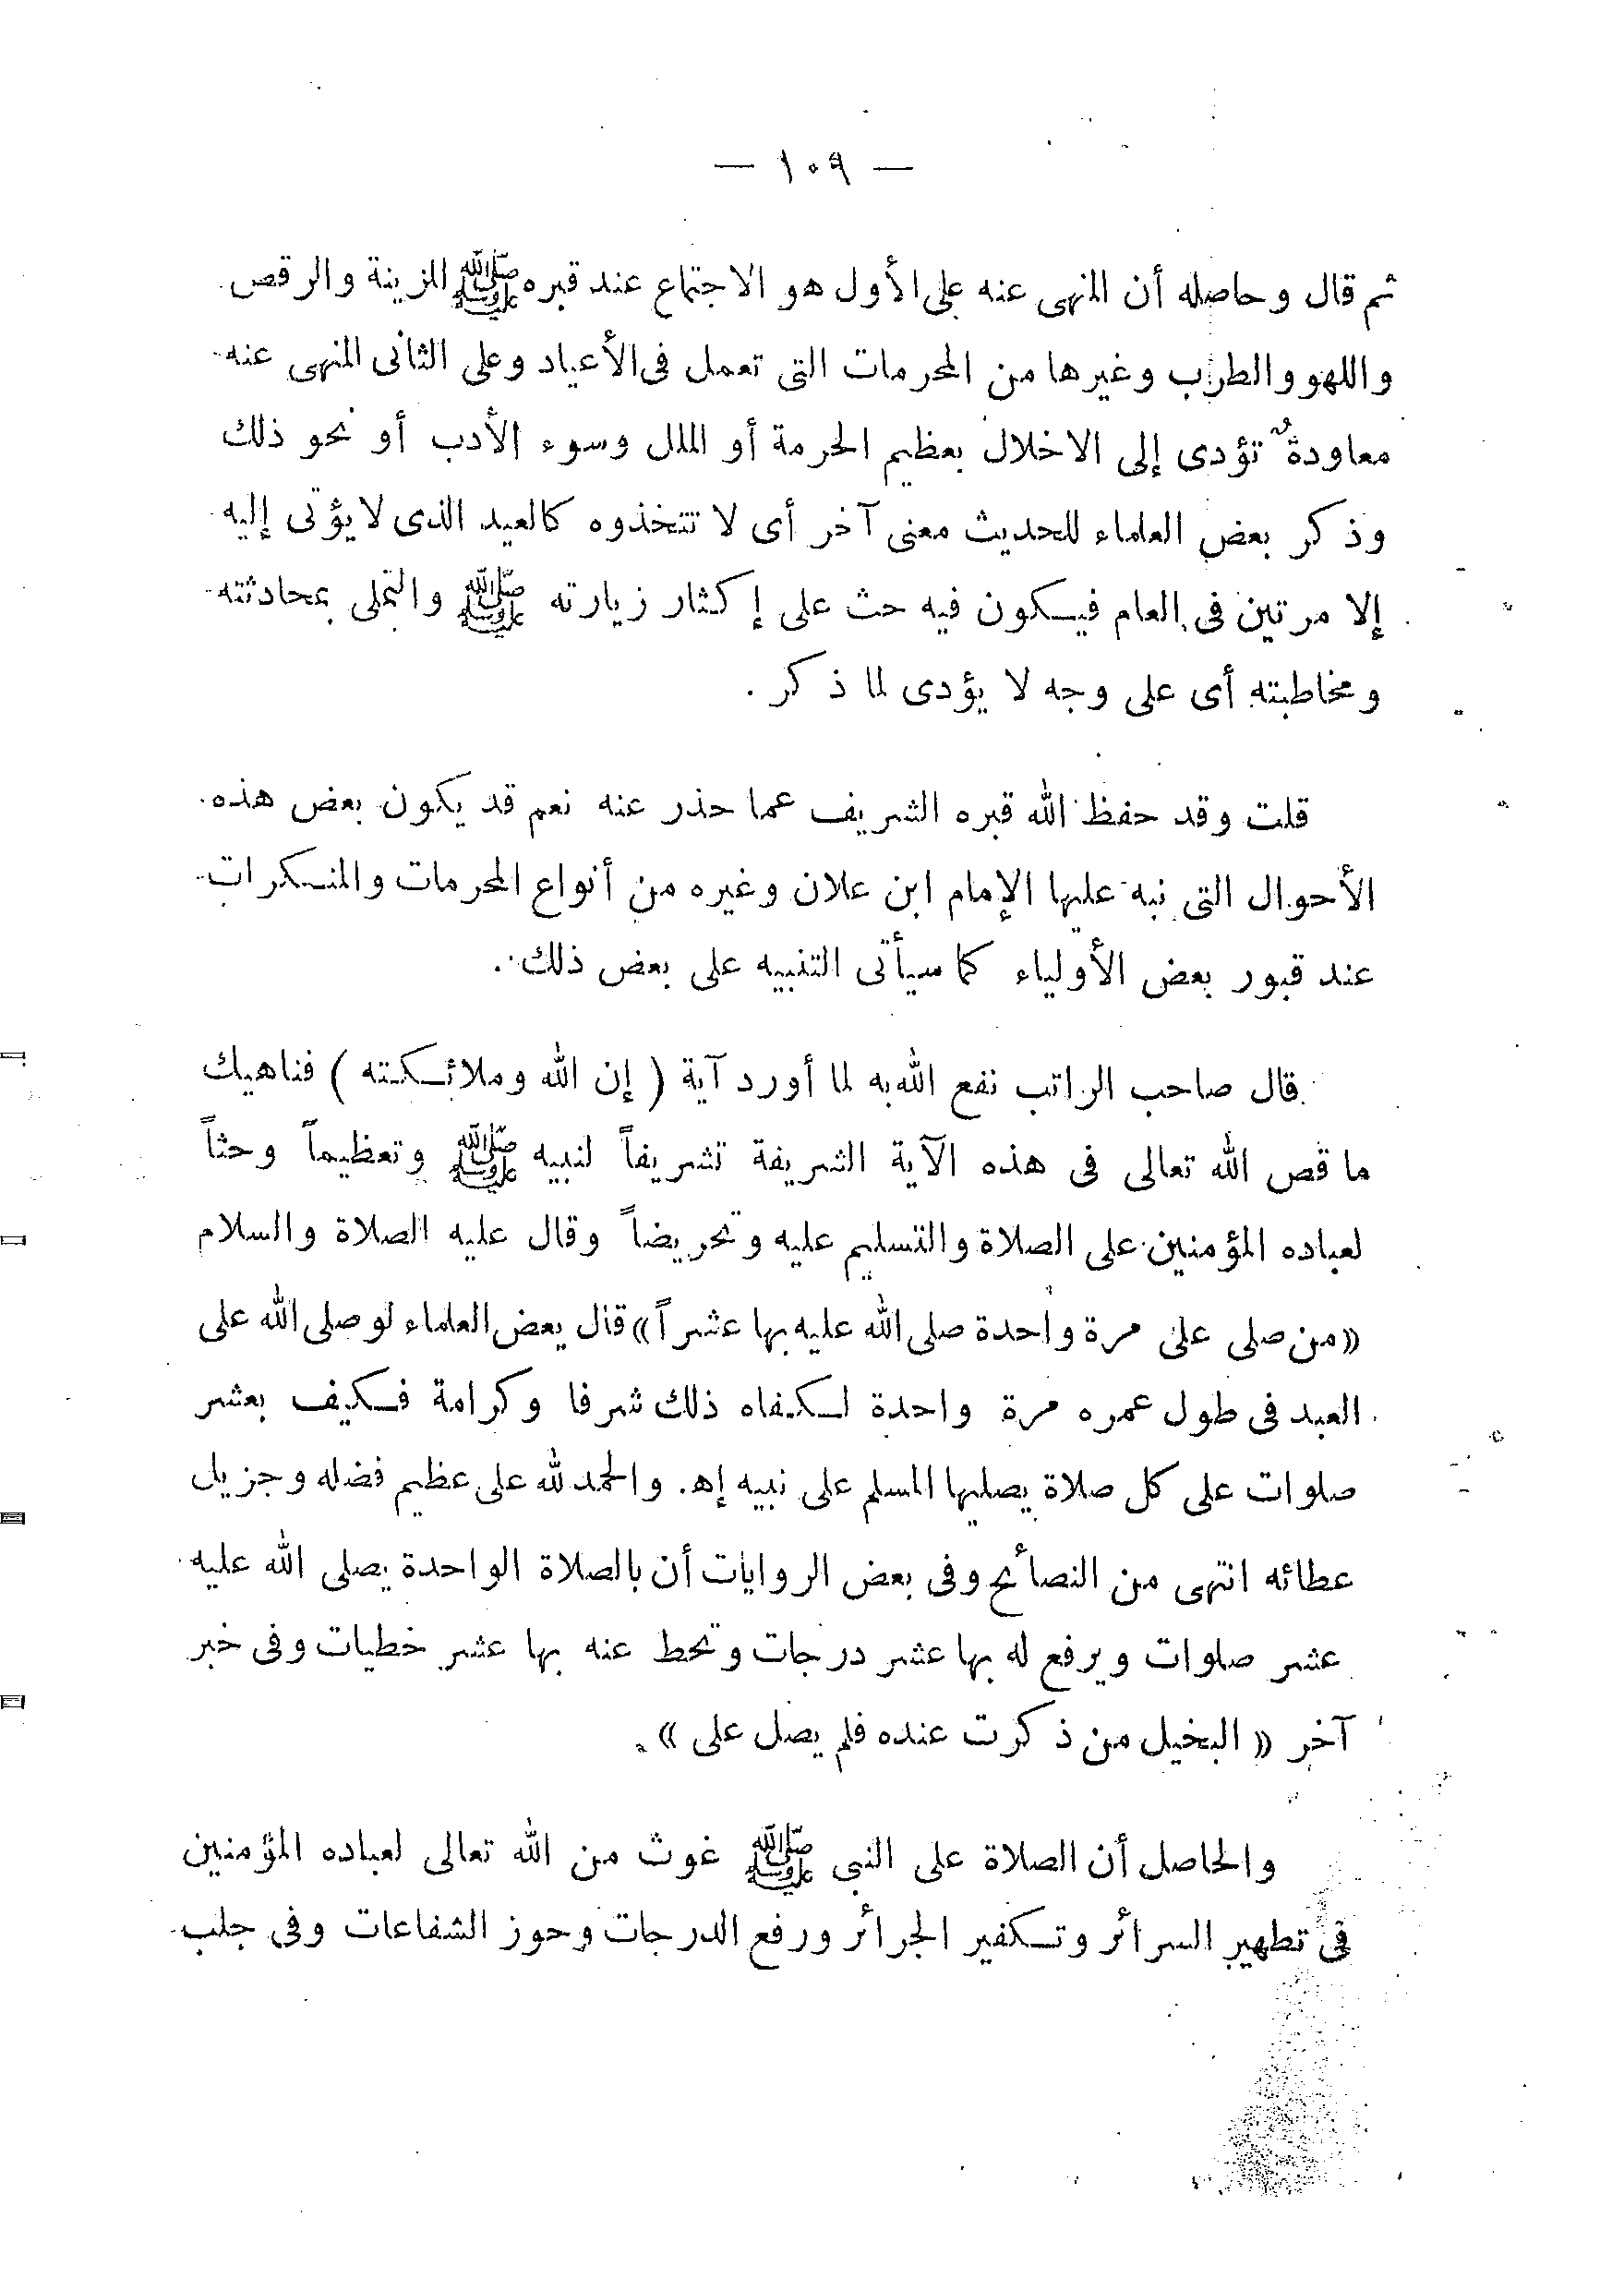 — ١٠٩ —
ثم قال وحاصله أن المنهى عنه على الأول هو الاجتماع عند قبره ﷺ للزينة والرقص
واللهو والطرب وغيرها من المحرمات التى تعمل فى الأعياد وعلى الثانى المنهى عنه
معاودةٌ تؤدى إلى الاخلال بعظيم الحرمة أو الملل وسوء الأدب أو نحو ذلك
وذكر بعض العلماء للحديث معنى آخر أى لا تتخذوه كالعيد الذى لا يؤتى إليه
إلا مرتين فى العام فيكون فيه حث على إكثار زيارته ﷺ والتملى بمحادثته
ومخاطبته أى على وجه لا يؤدى لما ذكر .
قلت وقد حفظ الله قبره الشريف عما حذر عنه نعم قد يكون بعض هذه
الأحوال التى نبه عليها الإمام ابن علان وغيره من أنواع المحرمات والمنكرات
عند قبور بعض الأولياء كما سيأتى التنبيه على بعض ذلك .
قال صاحب الراتب نفع الله به لما أورد آية ( إن الله وملائكته ) فناهيك
ما قص الله تعالى فى هذه الآية الشريفة تشريفاً لنبيه ﷺ وتعظيماً وحثاً
لعباده المؤمنين على الصلاة والتسليم عليه وتحريضاً وقال عليه الصلاة والسلام
«من صلى على مرة واحدة صلى الله عليه بها عشراً» قال بعض العلماء لو صلى الله على
العبد فى طول عمره مرة واحدة لكفاه ذلك شرفا وكرامة فكيف بعشر
صلوات على كل صلاة يصليها المسلم على نبيه إه. والحمد لله على عظيم فضله وجزيل
عطائه انتهى من النصائح وفى بعض الروايات أن بالصلاة الواحدة يصلى الله عليه
عشر صلوات ويرفع له بها عشر درجات وتحط عنه بها عشر خطيات وفى خبر
آخر « البخيل من ذكرت عنده فلم يصل على » .
والحاصل أن الصلاة على النبى ﷺ غوث من الله تعالى لعباده المؤمنين
فى تطهير السرائر وتكفير الجرائر ورفع الدرجات وحوز الشفاعات وفى جلب